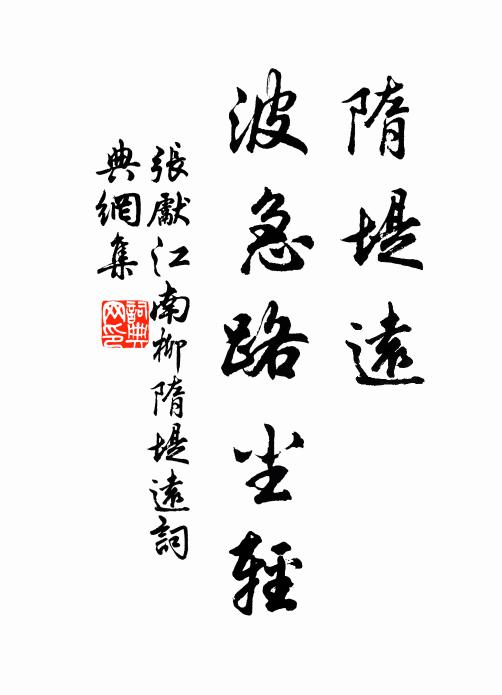 隋堤遠
波急路尘輕
張獻江南柳隋堤遠詞
典網集
詞典
网印